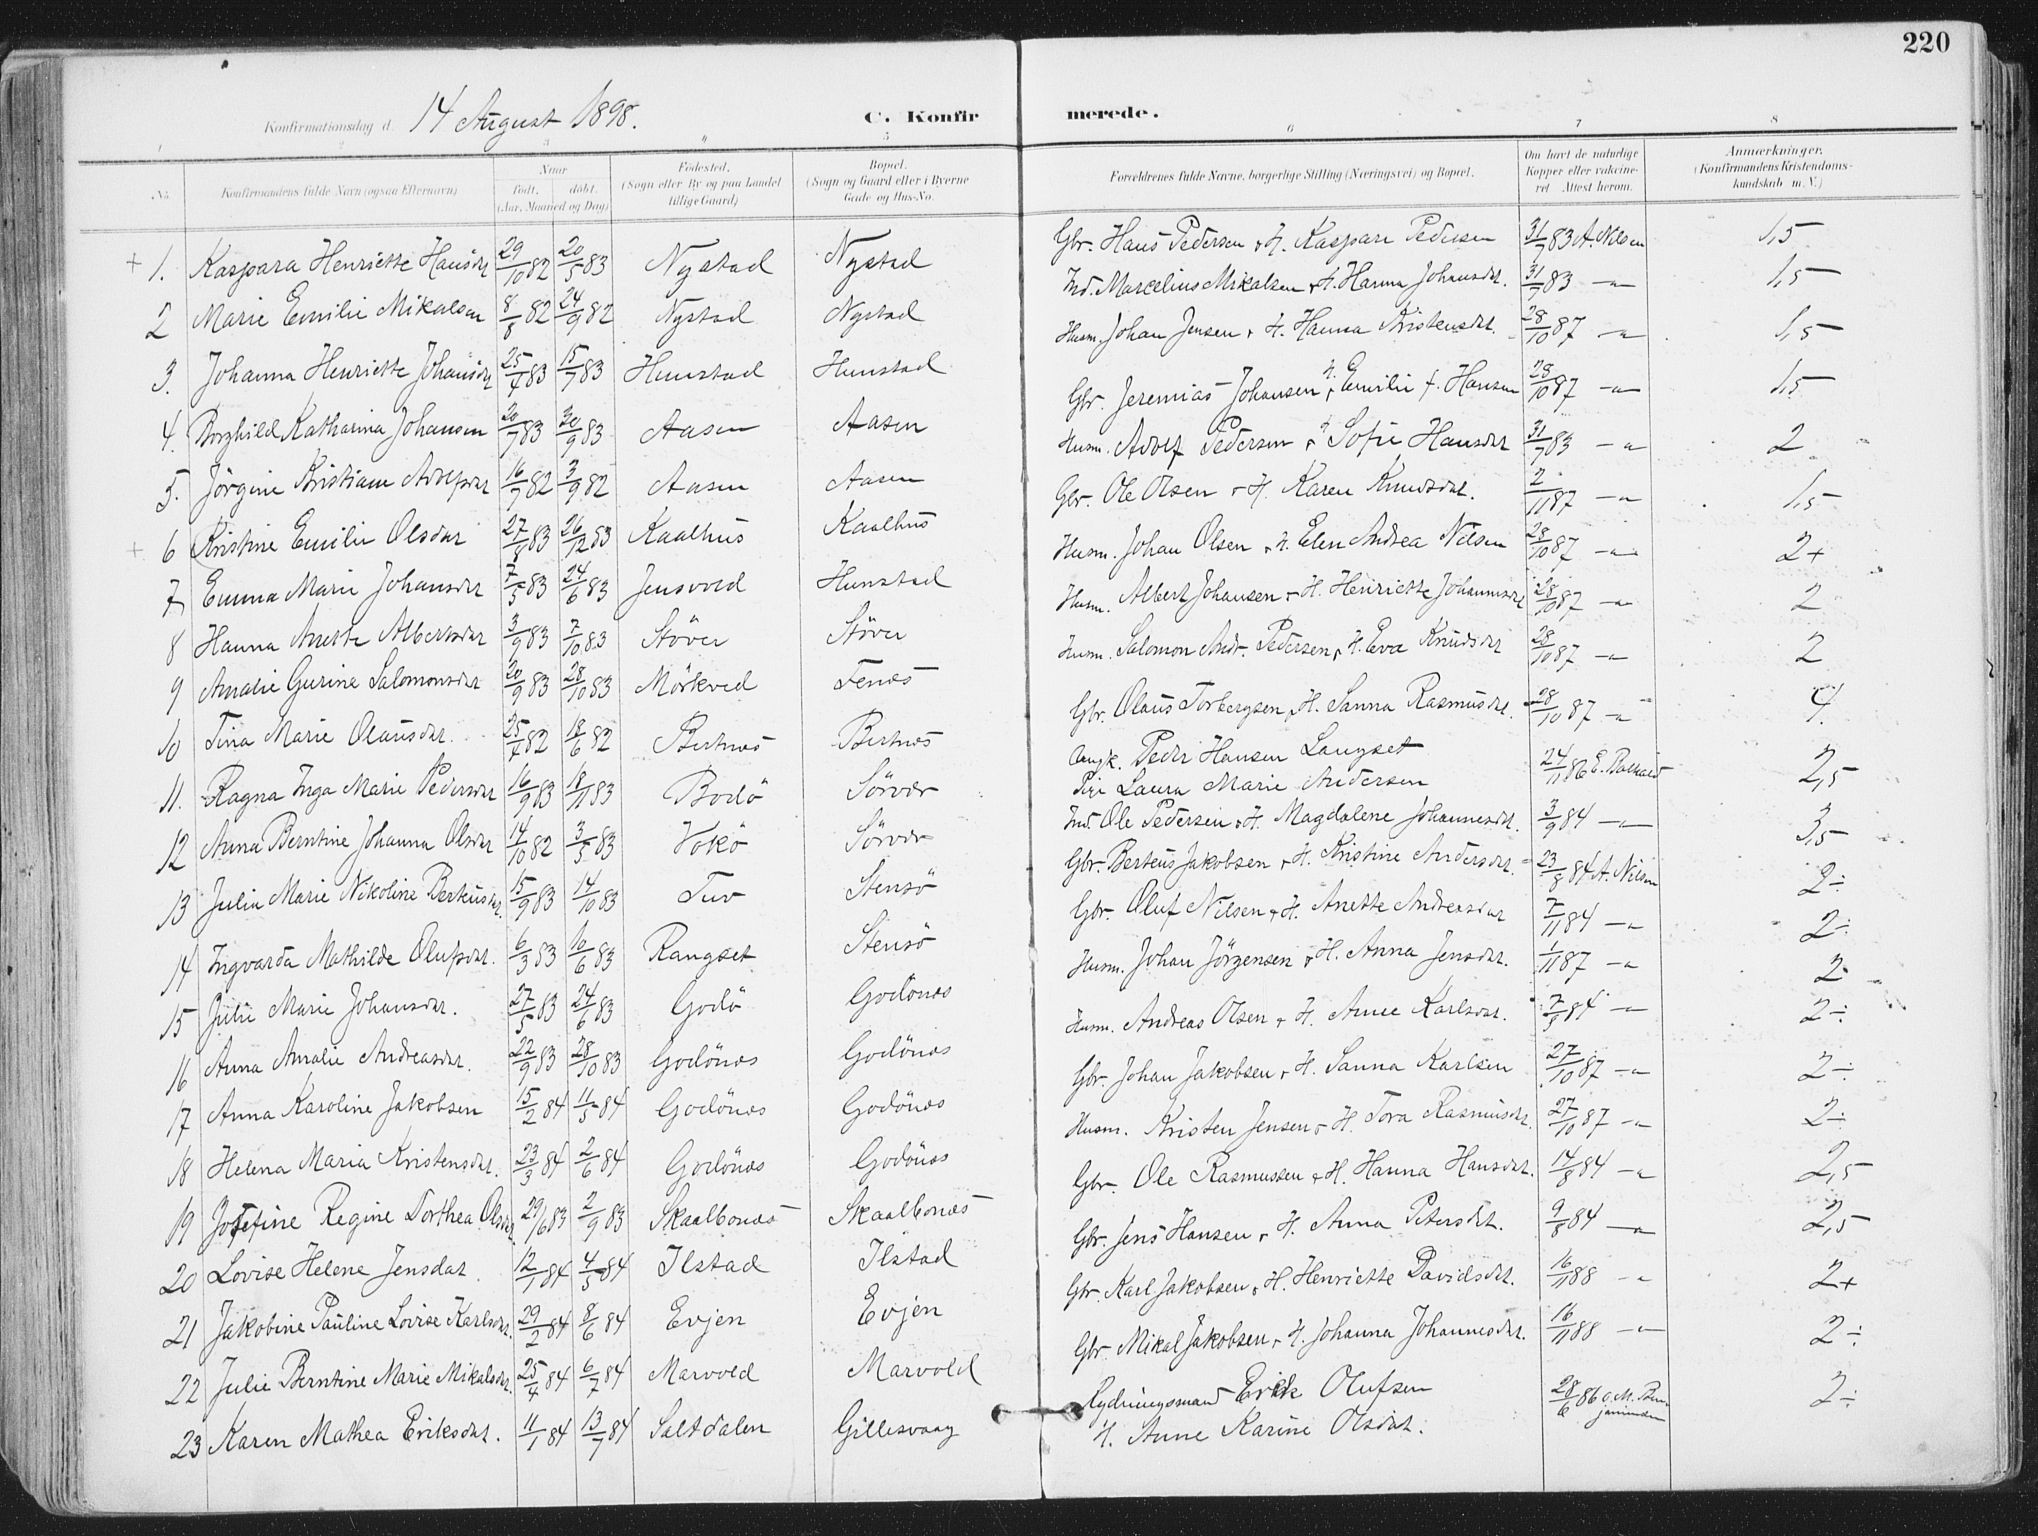 220
Konfirmationsdag d. 14 August 1898. C. Konfirmerede.
1 2 3 4 5 6 7 8
No. Konfirmandens fulde Navn (ogsaa Efternavn) Naar født. døbt. (Aar, Maaned og Dag) Fødested. (Sogn eller By og paa Landet tillige Gaard) Bopæl. (Sogn og Gaard eller i Byerne Gade og Hus-No. Forældrenes fulde Navne, borgerlige Stilling (Næringsvei) og Bopæl. Om havt de naturlige Kopper eller vaccineret. Attest herom. Anmærkninger. (Konfirmandens Kristendomskundskab m. V.)
+ 1. Kaspara Henriette Hansdtr 29/10 82 20/5 83 Nystad Nystad Gbr. Hans Pedersen & H. Kaspara Pedersen 31/7 83 A. Nilsen 1,5
2 Marie Emilie Mikalsen 8/8 82 24/9 82 Nystad Nystad Ind. Marcelius Mikalsen & H. Hanna Johansdtr. 31/7 83 -"- 1,5
3. Johanna Henriette Johansdtr 25/4 83 15/7 83 Hunstad Hunstad Husm. Johan Jensen & H. Hanna Kristensdtr. 28/10 87 -"- 1,5
4. Borghild Katharina Johansen 20/7 83 30/9 83 Aasen Aasen Gbr. Jeremias Johansen & H. Emilie f. Hansen 28/10 87 -"- 1,5
5. Jörgine Kristiane Adolfsdtr 16/7 82 3/9 82 Aasen Aasen Husm. Adolf Pedersen & H. Sofie Hansdtr 31/7 83 -"- 2
+ 6 Kristine Emilie Olsdtr 27/8 83 26/12 83 Kaalhus Kaalhus Gbr. Ole Olsen & H. Karen Knudsdtr. 2/11 87 -"- 1,5
7 Emma Marie Johansdtr 7/5 83 24/6 83 Jensvold Hunstad Husm. Johan Olsen & H. Elen Andrea Nilsen 28/10 87 -"- 2+
8 Hanna Anette Albertsdtr 3/9 83 7/10 83 Stöver Stöver Husm. Albert Johansen & H. Henriette Johannesdtr 28/10 87 -"- 2
9 Amalie Gurine Salomonsdtr 20/9 83 28/10 83 Mörkved Fenes Husm. Salomon Andr. Pedersen & H. Eva Knudsdtr 28/10 87 -"- 2
10 Tina Marie Olausdtr. 25/4 82 18/6 82 Bertnes Bertnes Gbr. Olaus Torbergsen & H. Sanna Rasmusdtr. 28/10 87 -"- 4.
11. Ragna Inga Marie Pedersdtr 16/9 83 18/11 83 Bodö Sörvær Ungk. Peder Hansen Langset
Pige Laura Marie Andersen 24/11 86 2,5
12 Anna Berntine Johanna Olsdtr 14/10 82 3/5 83 Vokö Sörvær Ind. Ole Pedersen & H. Magdalene Johannesdtr. 3/9 84 -"- 3,5
13 Julia Marie Nikoline Berteusdtr. 15/9 83 14/10 83 Tuv Stensö Gbr. Berteus Jakobsen & H. Kristine Andersdtr. 23/8 84 A. Nilsen 2÷
14 Ingvarda Mathilde Olufsdtr. 6/3 83 10/6 83 Rangset Stensö Gbr. Oluf Nilsen & H. Anette Andreasdtr 7/11 84 -"- 2÷
15 Julie Marie Johansdtr. 27/5 83 24/6 83 Godö Godönes Husm. Johan Jörgensen & H. Anna Jensdtr. 1/11 87 -"- 2-
16 Anna Amalie Andreasdtr. 22/9 83 28/10 83 Godönes Godönes Husm. Andreas Olsen & H. Anne Karlsdtr. 7/9 84 -"- 2÷
17 Anna Karoline Jakobsen 15/2 84 11/5 84 Godönes Godönes Gbr. Johan Jakobsen & H. Sanna Karlsen 27/10 87 -"- 2÷
18 Helena Maria Kristensdtr. 23/3 84 2/6 84 Godönes Godönes Husm. Kristen Jensen & H. Tora Rasmusdtr. 27/10 87 -"- 2÷
19 Josefine Regine Dorthea Olsdtr 29/6 83 2/9 83 Skaalbones Skaalbones Gbr. Ole Rasmussen & H. Hanna Hansdtr. 14/8 84 -"- 2,5
20 Lovise Helene Jensdtr. 12/1 84 4/5 84 Ilstad Ilstad Gbr. Jens Hansen & H. Anna Petersdtr. 9/8 84 -"- 2,5
21 Jakobine Pauline Lovise Karlsdtr. 29/2 84 8/6 84 Evjen Evjen Gbr. Karl Jakobsen & H. Henriette Davidsdtr. 16/11 88 -"- 2+
22 Julie Berntine Marie Mikalsdtr. 25/4 84 6/7 84 Marvold Marvold Gbr. Mikal Jakobsen & H. Johanna Johannesdtr. 16/11 88 -"- 2÷
23 Karen Mathea Eriksdtr. 11/1 84 13/7 84 Saltdalen Gillesvaag Rydningsmand Erik Olufsen
H. Anne Karine Olsdtr. 28/6 86 O. M. Benjaminsen 2÷